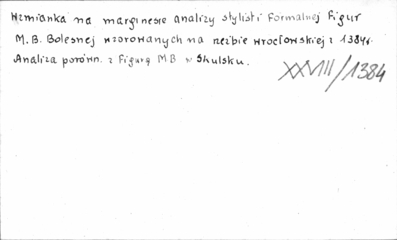 Wzmianka na marginesie analizy stylist i formalnej figur
M.B. Bolesnej wzorowanych na rzeźbie wrocłowskiej z 1384r.
Analiza porówn. z figurą MB w Skulsku.
XXVIII/1384